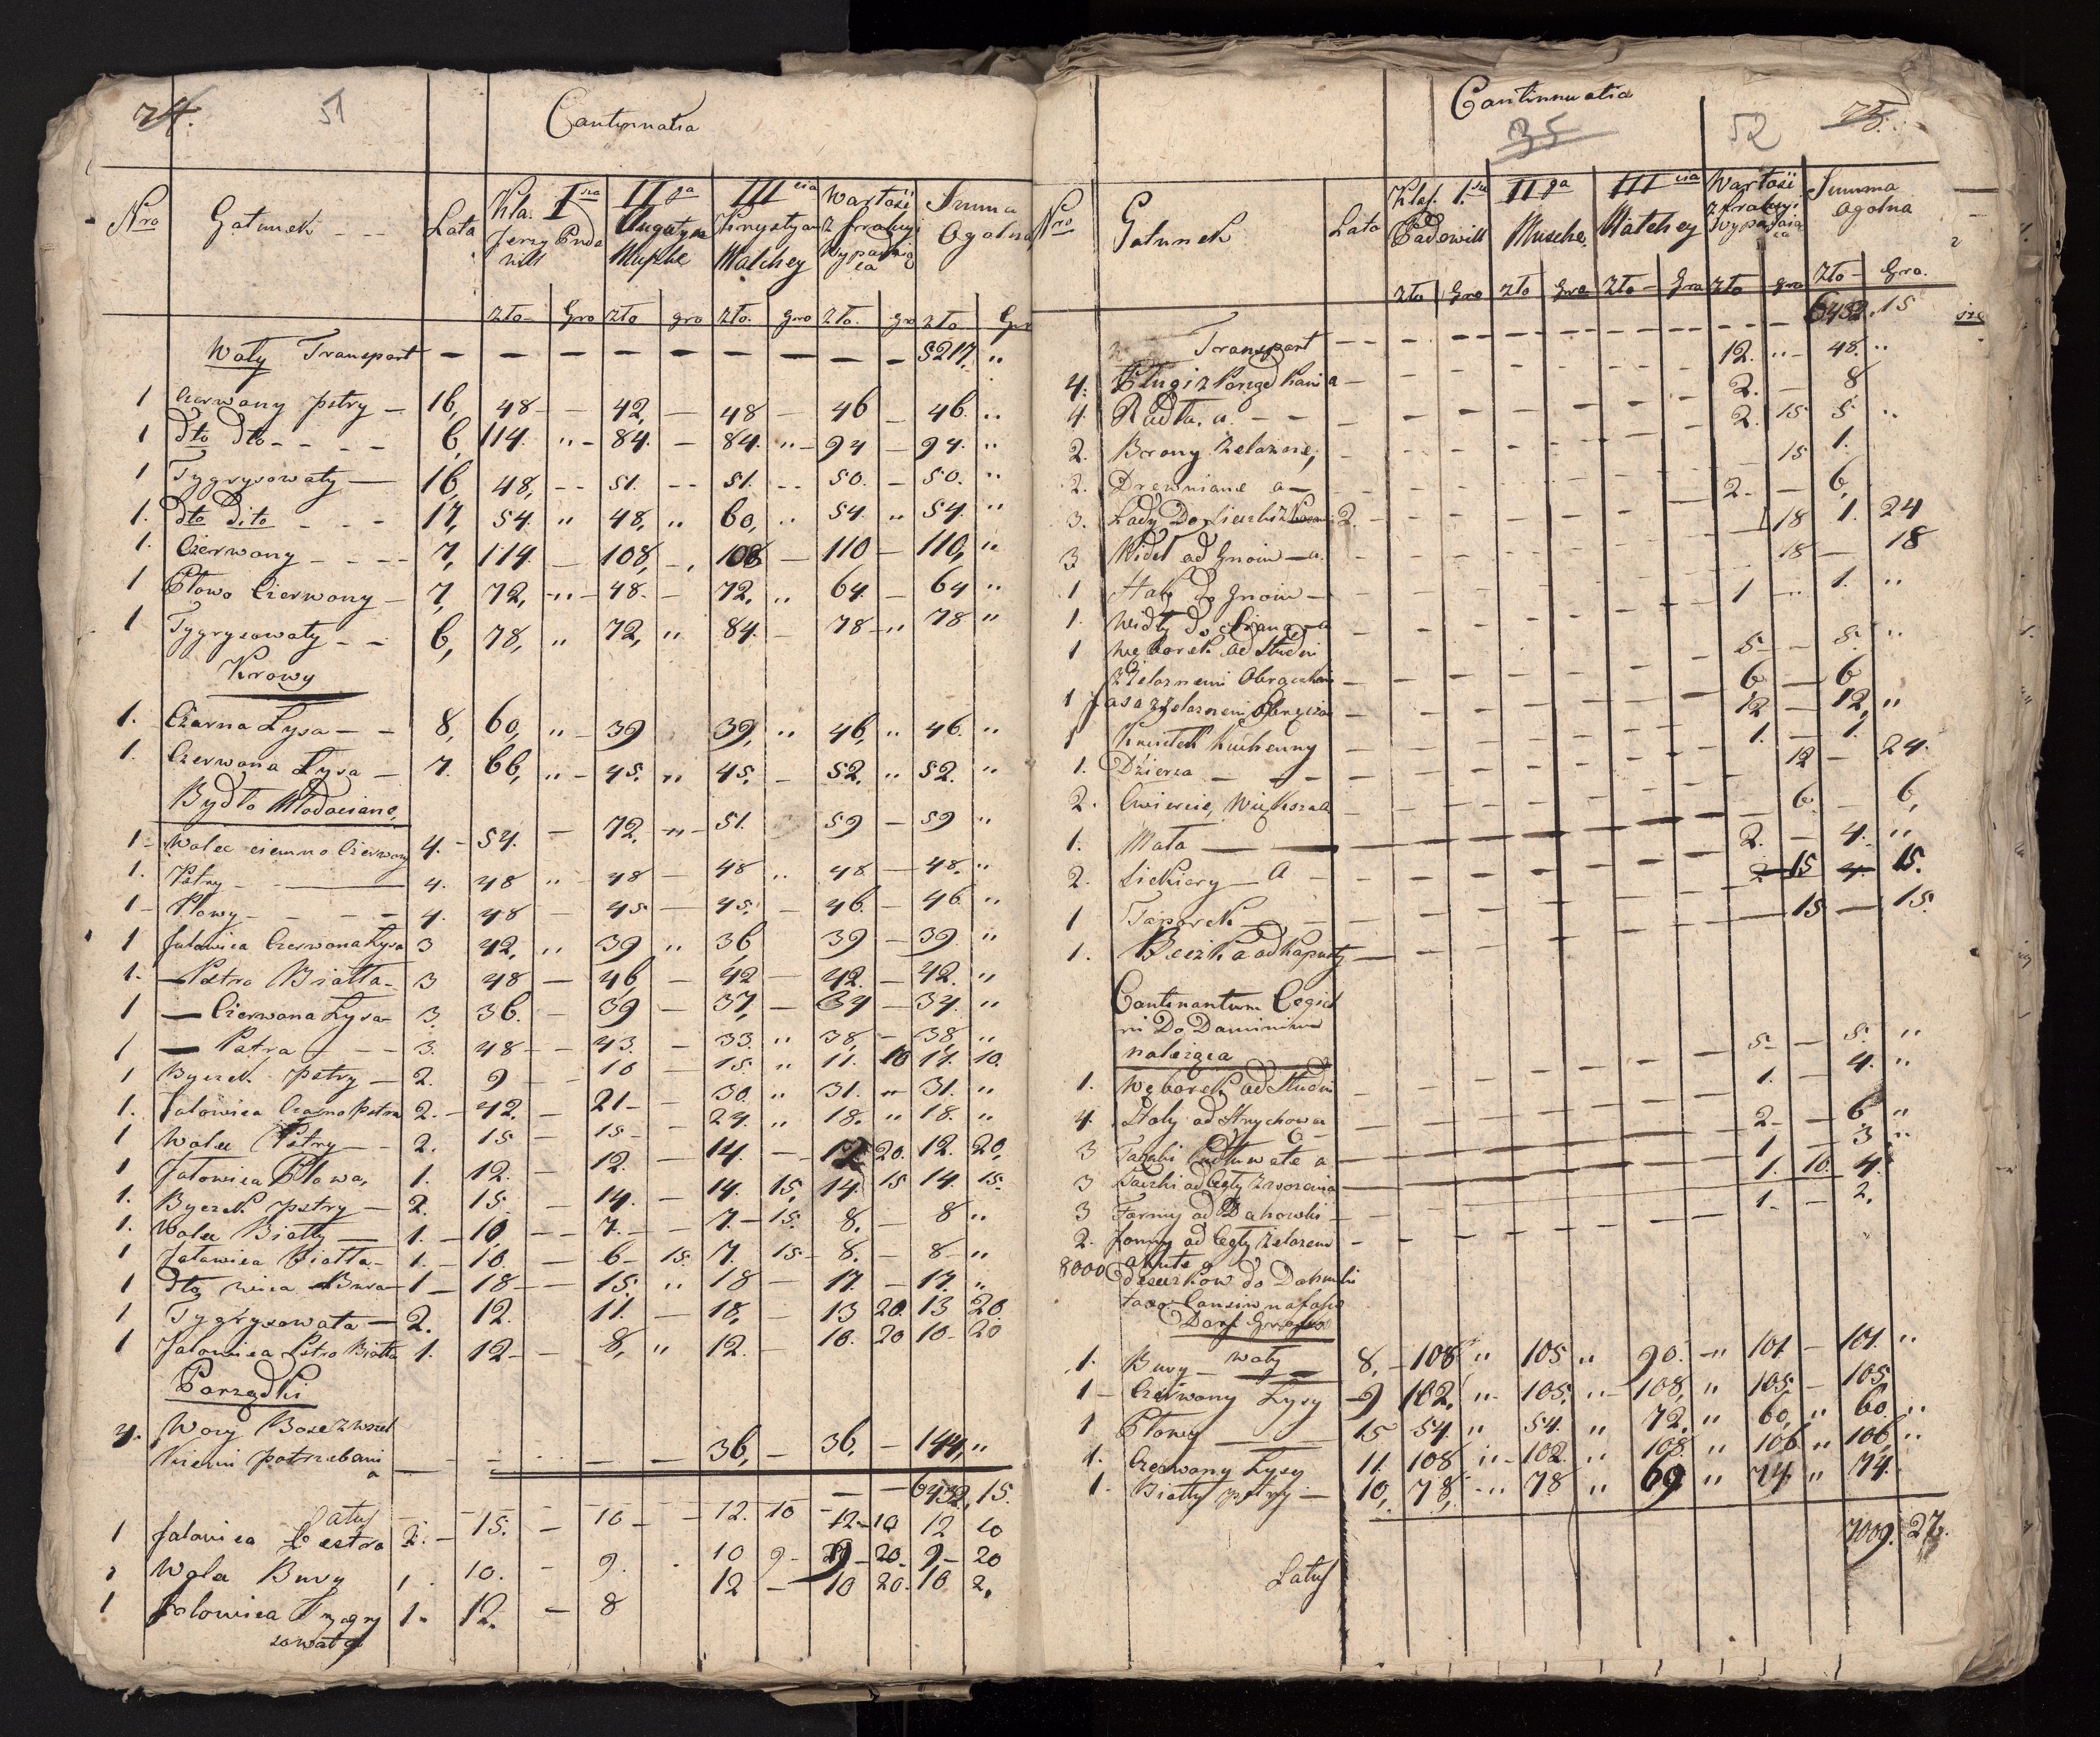 74. 51 Continuatia
Nro Gatunek - - - Lata Kla. I sza II ga III cia Wartość Summa
Jerzy Pude Krystyan z frakcyi Ogolna
will Muszke Matchey Wypadaią
ca
zło Gro zło gro zło. gro zło. gro zło
Woły Transport — — — — — — — — — 5217. "
1 Czerwony pstry — 16, 48 - - 42, — 48 — 46 — 46. "
1 dto dto - - - 6, 114. " - 84. — 84. " - 94 — 94. "
1 Tygrysowaty — 16, 48, - - 51. - - 51. - - 50. — 50. "
1. dto dito - - - 17, 54. " 48, " 60, " 54 " 54. "
1. Czerwony - - - - 7, 114. — 108, - . 108 — 110 — 110, "
1 Płowo Czerwony — 7, 72, - " - 48. — 72, " 64. — 64 "
1 Tygrysowaty - - 6, 78, " 72, " 84. — 78 - " 78 "
Krowy
1. Czarna Łysa - - 8, 60, " - 39 39, " 46, " 46. "
1. Czerwona Łysa — 7. 66, " - 45. " 45, — 52. " 52. "
Bydło Młodociane,
1 - Wolec ciemno Czerwony 4. - 54. — 72, - " - 51. 59 — 59 "
1. Pstry - — 4. 48 " - 48 — 48 " 48 — 48. "
1 - Płowy - - - - 4. 48 — 45 — 45. — 46. — 46. "
1 Jałowica Czerwona Łysa 3 42, " 39 " 36, 39 — 39. "
1. — Pstro Biatta - 3 48 — 46, — 42 — 42. — 42. "
1 — Czerwona Łysa 3. 36. — 39 — 37, — 34 — 34. "
1 — Pstra - - - 3. 48 - - 43. — 33. " 38, — 38, "
1 Byczek pstry — 2. 9 - - 10 — 15. " 11. 10 11. 10.
1. Jałowica Czarno pstra 2. - 42. — 21 — 30. " 31. " 31. "
1 Wolec Pstry - - 2. 15 — 15 - - 24. " 18. " 18. "
1 Jałowica Płowa, 1. 12. — 12. — 14. — 12 20. 12. 20.
1. Byczek pstry — 2. 15. — 14. — 14. 15, 14. 15 14. 15.
1. Wolec Biatty — 1. — 10. — 7. — 7. - 15. 8. — 8 "
1 Jałowica Biatta - 1. — 10. — 6 - 15. 7. 15 - 8. — 8 "
1 dto wica Bura 1 — 18 — 15. " 18 — 17. — 17. "
1 Tygrysowata — 2. 12. 11. — 18, — 13 20. 13 20
1 Jałowica Pstro Biatta 1. 12 - - 8, " 12. — 10. 20 10 - 20
Porządki
4. Wozy Bose z wszel
kiemi potrzebami
a — — — — — — 36, — 36, — 144, "
Latus — — 6432, 15.
1 Jałowica Pestra 2. - 15. — 10 — 12. 10 12 - 10 12 10
1 Wolec Bury 1. 10. — 9. . 10 9 - 9 - 20. 9, - 20
1 Jałowica Tygry 1. 12. — 8 12 — 10 20. 10 2.
sowata
Continuatia
35 52 75.
Nro Gatunek Lata Klas. I. sza II ga III cia Wartość Summa
Padewill Musche, Matchey z frakcyi Ogolna
Wypadaią
ca
zło Gro zło Gro zło - Gro zło gro zło - Gro.
Transport - - - - - - - - - - 6432. 15
4. Pługi z Porządkami a — 12. " - 48. "
4. Radła, a. - - 2. — 8
2. Brony żelazne, 2. 15 5 "
2. Drewniane a — 15 1.
3. 2. — 6,
3 Wideł od Gnoiu — a. 18 1. 24
1 Haky do Gnoiu — 18 — 18
1. Widły do Siana — a 1 " 1. "
1 Węborek od Studni
z żelaznemi Obręczkami — 5 — 5. "
1 Fasa z żelaznemi Obręczo 6 — 6
1 Kuchenny — 12 — 12, "
1. Dzierza - — — 1. — 1.
2. Cwiercie, Większa a 12 — 24.
1. Mała — — 6. — 6,
2. Siekiery — A — 2. — 4. "
1 Taporek — 15 15.
1. Beczka od Kapusty — 15 — 15.
Continantum Cegiel
ni Do Dominium
należąca
1. Węborek od Studni 5 — 5. "
4. Stoły od Strychowa
a — 1. — 4. "
3 a 2 - — 6 "
3 Taczki od Cegły z wożenia 1 — 3 "
3 Formy od Dahowki — 1. 10. 4.
2. Formy od Cegły żelazem
okute a 1 - — 2.
8000 Deszczkow do Dahowki
Dorf
Woły
1. Bury — — 8. - 108 " 105 " 90. - " 101 — 101. "
1 - Czerwony Łysy - 9 102. " - 105. " - 108, " 105 — 105.
1 Płowy — 15 54. " 54. " 72. " 60, " 60. "
1. Czerwony Łysy 11. 108 " - 102. " 108. " 106 " 106, "
1. Biatty pstry — 10, 78, - " 78 " 69 " 74. " 74.
Latus 7009. 27.